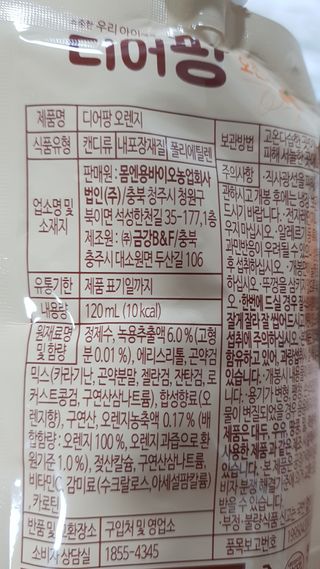 소중한 우리 아이
디어팡
제품명 디어팡 오렌지
식품유형 캔디류 내포장재질 폴리에틸렌
업소명 및 소재지
판매원 : 몸엔용바이오농업회사
법인(주)/충북 청주시 청원구
북이면 석성하천길 35-177,1층
제조원 : ㈜금강B&F/충북
충주시 대소원면 두산길 106
유통기한 제품 표기일까지
내용량 120 mL (10 kcal)
원재료명 및 함량
정제수, 녹용추출액 6.0 % (고형
분 0.01 %), 에리스리톨, 곤약검
믹스(카라기난, 곤약분말, 젤란검, 잔탄검, 로
커스트콩검, 구연산삼나트륨), 합성향료(오
렌지향), 구연산, 오렌지농축액 0.17 % (배
합함량 : 오렌지 100 %, 오렌지 과즙으로 환
원기준 1.0 %), 젖산칼슘, 구연산삼나트륨,
비타민C, 감미료(수크랄로스, 아세설팜칼륨)
, 카로틴
반품 및 교환장소 구입처 및 영업소
소비자 상담실 1855-4345
보관방법 고온다습한
피해 서늘한
주의사항 ·직사광선을 피
관하시고 개봉 후에는 냉장
드시기 바랍니다. ·전자
지 마십시오. ·알레르기
과민반응이 우려될 수 있으
후 섭취하십시오. ·개봉
하십시오. ·뚜껑을 삼키
오. ·한번에 드실 경우 질
잘게 잘라 잘 씹어 드시고
섭취에 주의하십시오.
함유하고 있어, 과량섭취
있습니다. ·개봉시 내용
니다. ·용기가 변형, 팽창
물이 변질되었을 경우
제품은 대두, 우유,
사용한 제품과 같은 제조
습니다. ·본 제품은
비자 분쟁 해결기준에
받을 수 있습니다.
·부정·불량식품 신고는 국번
품목보고번호